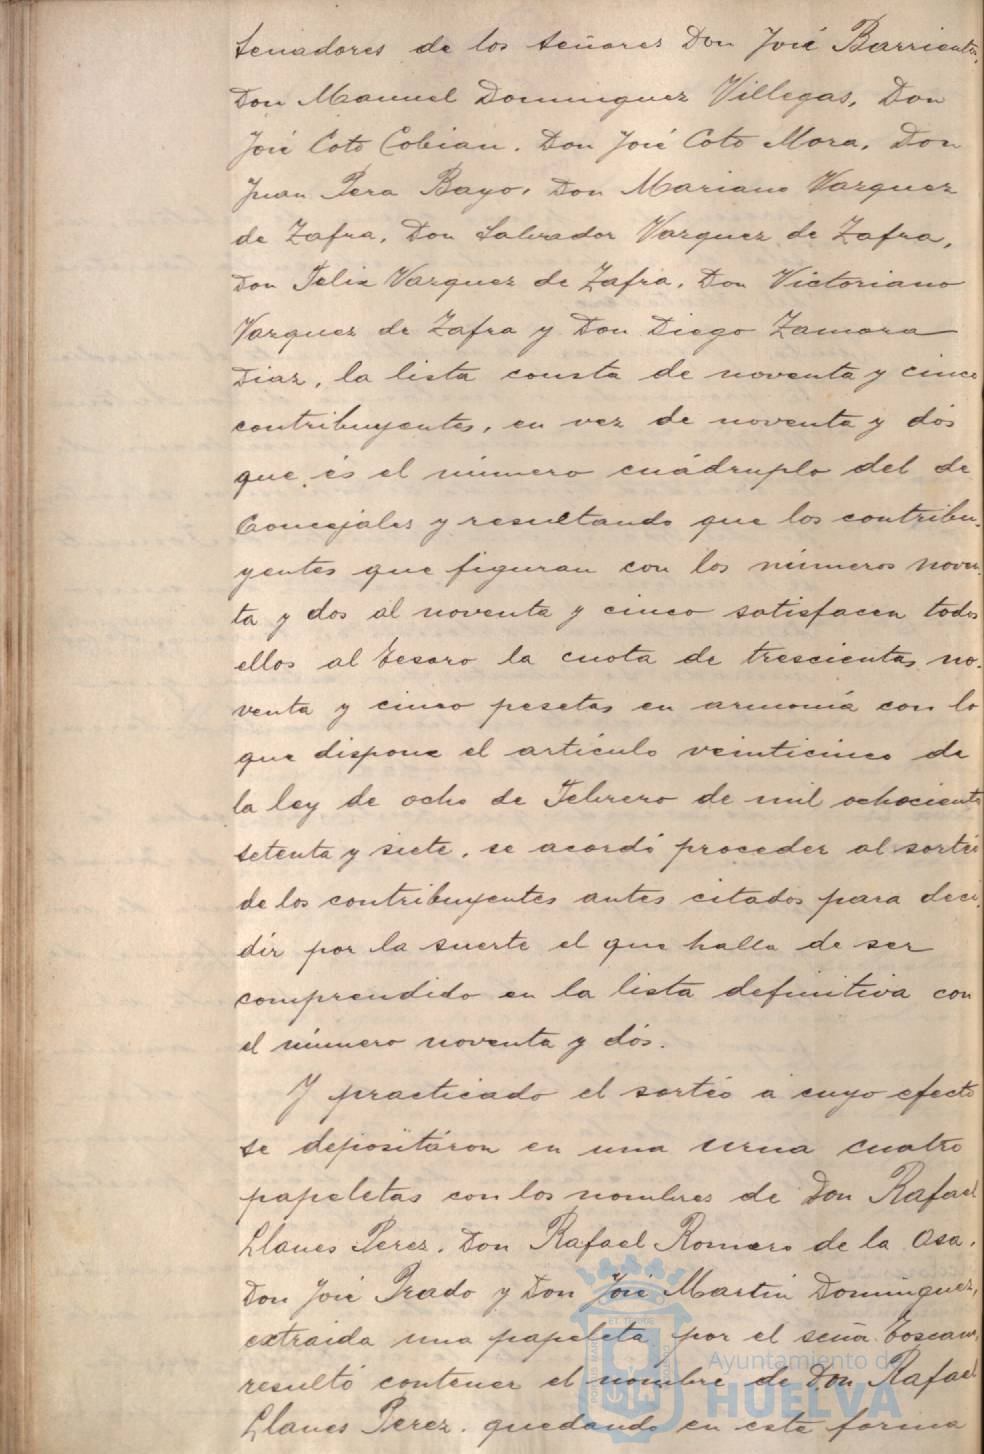 Senadores de los Señores Don José Barrientos,
Don Manuel Dominguez Villegas, Don
José Coto Cobian, Don José Coto Mora, Don
Juan Pera Bayo, Don Mariano Vazquez
de Zafra, Don Salvador Vazquez de Zafra,
Don Felix Vazquez de Zafra, Don Victoriano
Vazquez de Zafra y Don Diego Zamora
Diaz, la lista consta de noventa y cinco
contribuyentes, en vez de noventa y dós
que és el número cuádruplo del de
Concejales y resultando que los contribu-
yentes que figuran con los números noven-
ta y dos al noventa y cinco satisfacen todos
ellos al Tesoro la cuota de trescientas no-
venta y cinco pesetas en armonía con lo
que dispone el artículo veinticinco de
la ley de ocho de Febrero de mil ochocientos
setenta y siete, se acordó proceder al sorteo
de los contribuyentes antes citados para deci-
dir por la suerte el que halla de ser
comprendido en la lista definitiva con
el número noventa y dós.
Y practicado el sorteo á cuyo efecto
se depositáron en una urna cuatro
papeletas con los nombres de Don Rafael
Llanes Perez, Don Rafael Romero de la Osa,
Don José Prado y Don José Martin Dominguez,
extraida una papeleta por el señor Toscano,
resultó contener el nombre de Don Rafael
Llanes Perez, quedando en esta forma
Ayuntamiento de
HUELVA